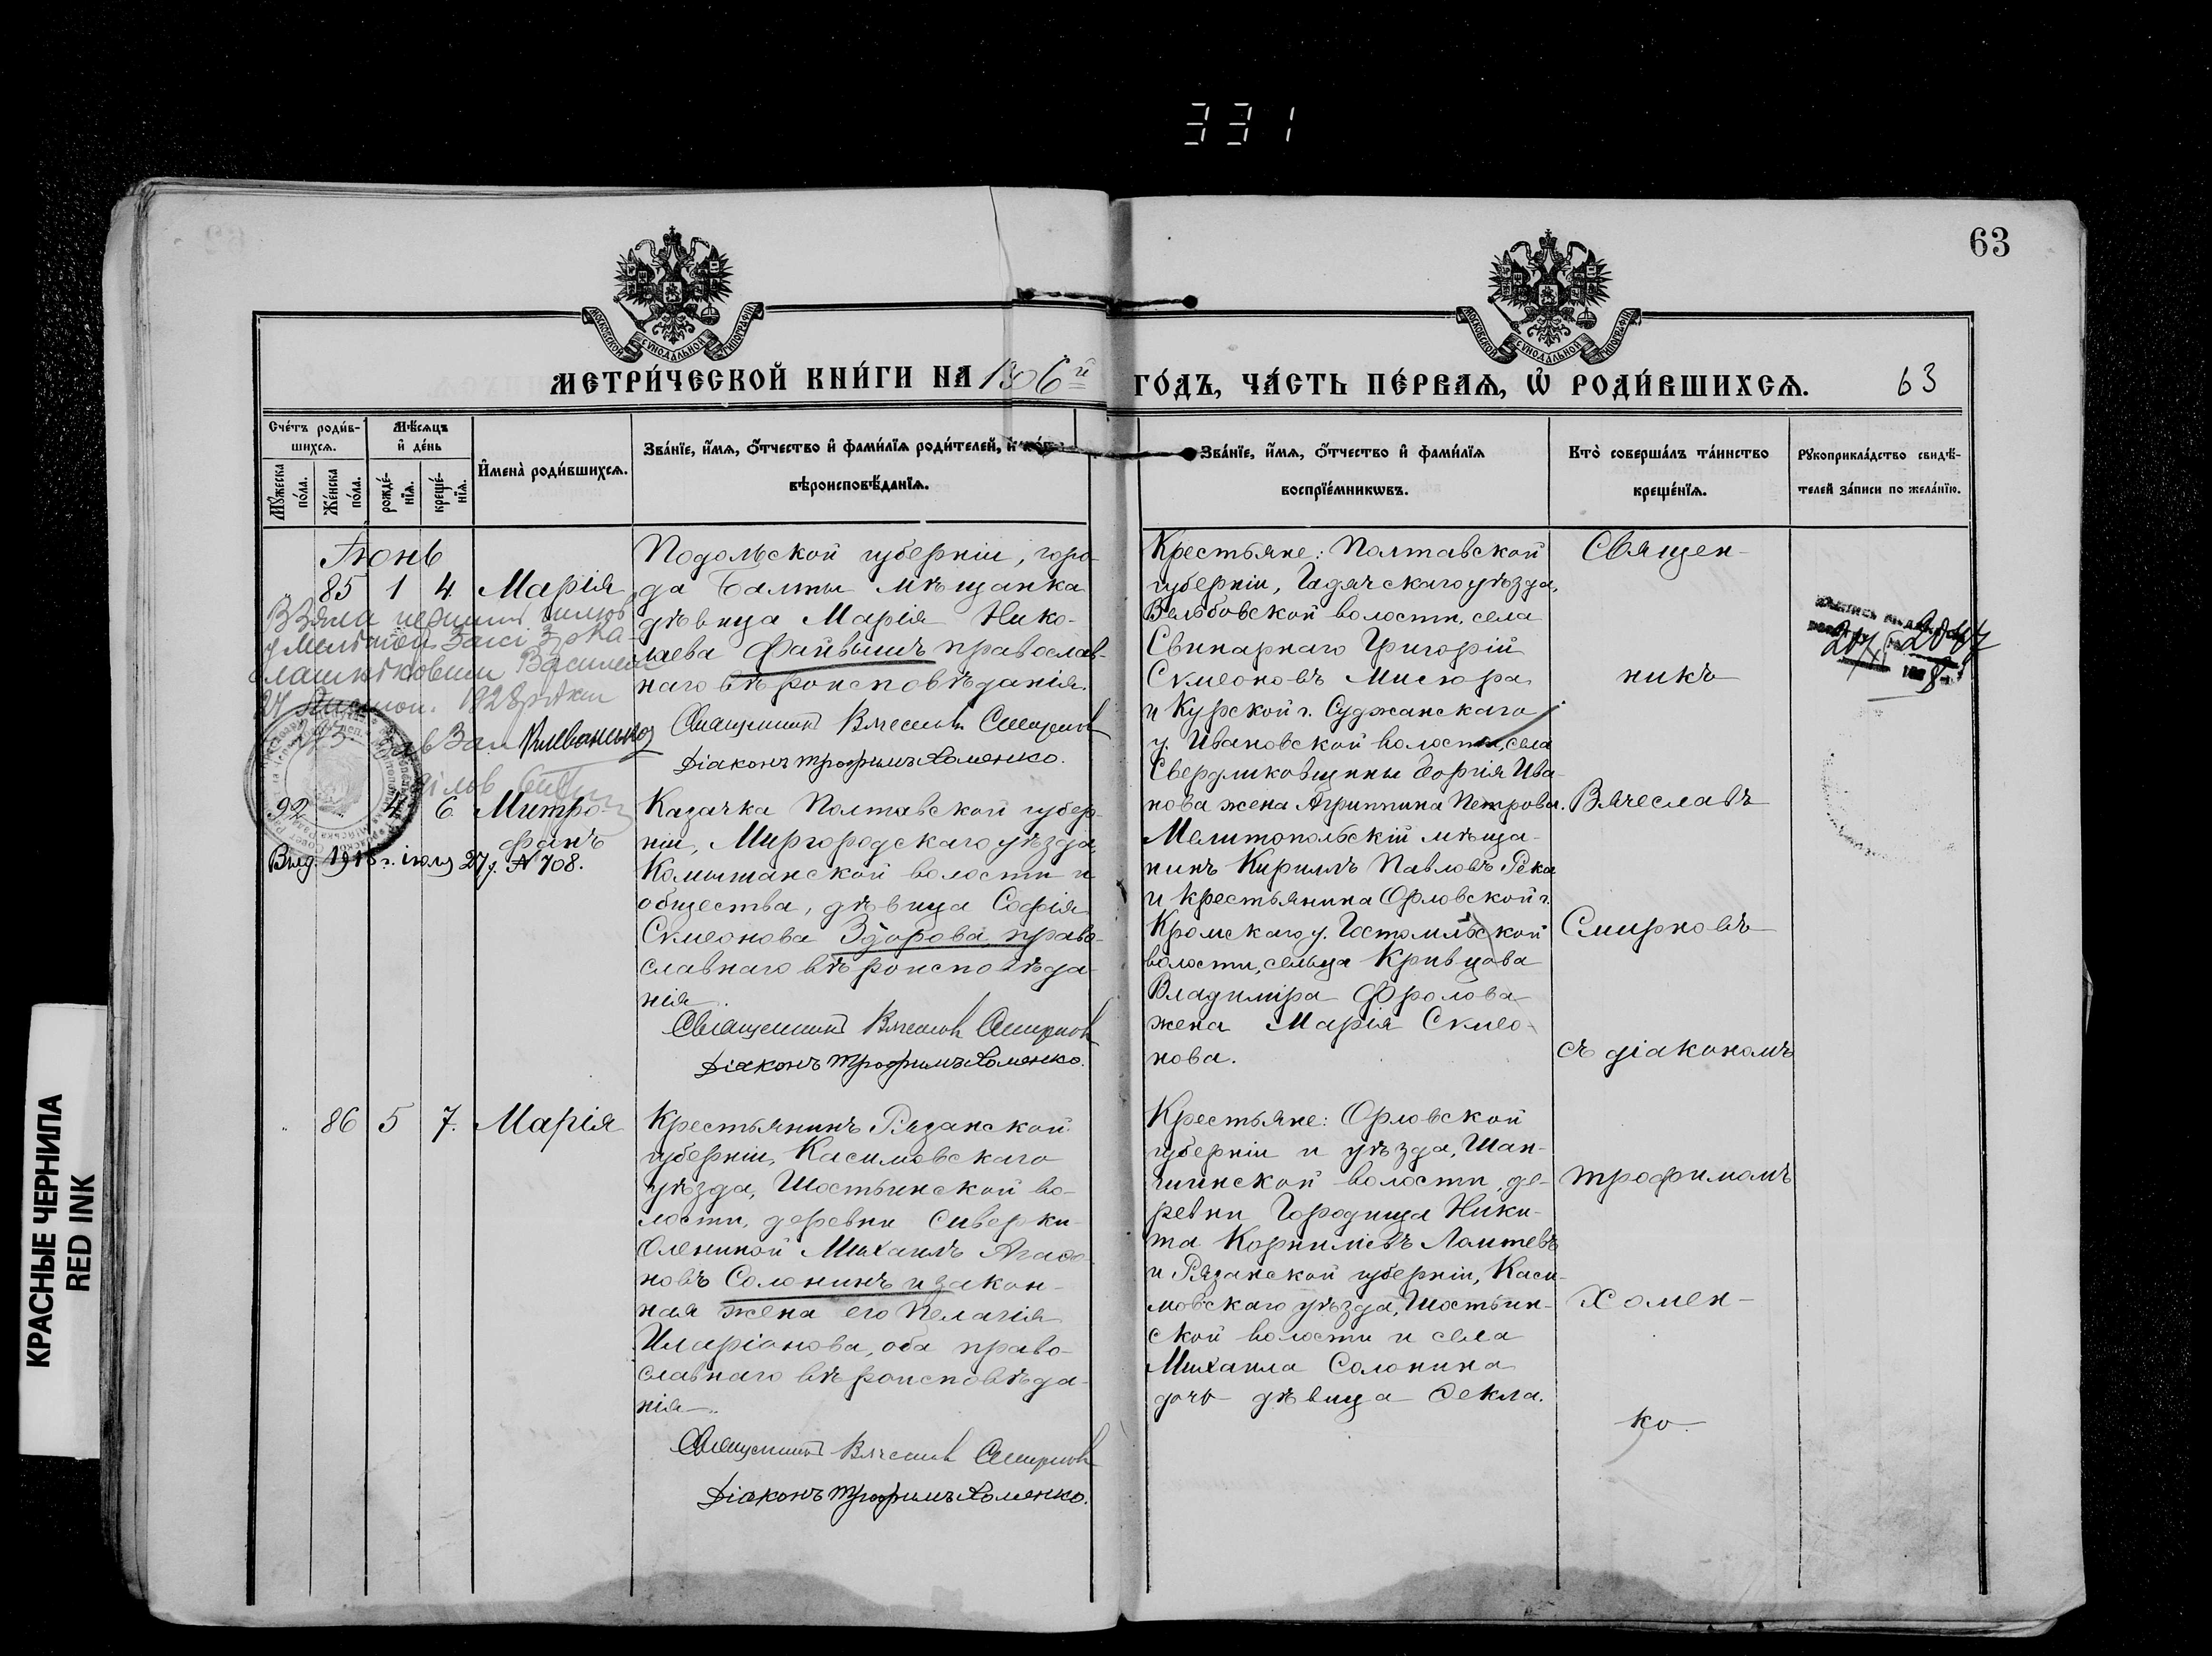 331
63
МОСКОВСКОЙ СѴНОДАЛЬНОЙ ТИПОГРАФІИ
МОСКОВСКОЙ СѴНОДАЛЬНОЙ ТИПОГРАФІИ
МЕТРИ́ЧЕСКОЙ КНИ́ГИ НА 1906й ГО́ДЪ, ЧА́СТЬ ПЕ́РВАѦ, Ѡ҆ РОДИ́ВШИХСѦ. 63
Сче́тъ роди́в-
шихсѧ.
Мѣ́сѧцъ
и҆ де́нь
Мꙋ́жеска по́ла.
Же́нска по́ла.
рожде́-
нїѧ.
креще́-
нїѧ.
И҆мена̀ роди́вшихсѧ.
Зва́нїе, и҆́мѧ, ѻ҆́тчество и҆ фами́лїѧ роди́телей, и҆
вѣроисповѣ́данїѧ.
Зва́нїе, и҆́мѧ, ѻ҆́тчество и҆ фами́лїѧ
воспрїе́мникѡвъ.
Кто̀ соверша́лъ та́инство
креще́нїѧ.
Рꙋкоприкла́дство свидѣ́-
телей за́писи по жела́нїю.
Іюнь
85 1 4. Марія
Подольской губерніи, горо-
да Балты мѣщанка
дѣвица Марія Нико-
лаева Файвышъ православ-
наго вѣроисповѣданія.
Священникъ Вячеславъ Смирновъ
Діаконъ Трофимъ Хоменко.
Крестьяне: Полтавской
губерніи, Гадячскаго уѣзда,
Вельбовской волости, села
Свинарнаго Григорій
Симеоновъ Мисюра
и Курской г. Суджанскаго
у. Ивановской волости, села
Свердликовщины Георгія Ива-
нова жена Агриппина Петрова.
Взяла перший шлюб
Василем
27 1928 року
Зав Заг
92 4 6 Митро-
фанъ
Выд. 1915 г. іюля 27 д. № 708.
Казачка Полтавской губер-
ніи, Миргородскаго уѣзда,
Комышанской волости и
общества, дѣвица Софія
Симеонова Здорова право-
славнаго вѣроисповѣда-
нія.
Священникъ Вячеславъ Смирновъ
Діаконъ Трофимъ Хоменко.
Мелитопольскій мѣща-
нинъ Кириллъ Павловъ Река
и крестьянина Орловской г.
Кромскаго у. Гостомльской
волости, сельца Кривцова
Владиміра Фролова
жена Марія Симео-
нова.
86 5 7. Марія
Крестьянинъ Рязанской
губерніи, Касимовскаго
уѣзда, Шостьинской во-
лости, деревни Сиверки-
Олениной Михаилъ Агаѳо-
новъ Солонинъ и закон-
ная жена его Пелагія
Иларіонова, оба право-
славнаго вѣроисповѣда-
нія.
Священникъ Вячеславъ Смирновъ
Діаконъ Трофимъ Хоменко.
Крестьяне: Орловской
губерніи и уѣзда,
волости, де-
ревни Городища Ники-
та Корниліевъ Лаптевъ
и Рязанской губерніи, Каси-
мовскаго уѣзда, Шостьин-
ской волости и села
Михаила Солонина
дочь дѣвица Ѳекла.
Священ-
никъ
Вячеславъ
Смирновъ
съ діакономъ
Трофимомъ
Хомен-
ко.
КРАСНЫЕ ЧЕРНИЛА
RED INK